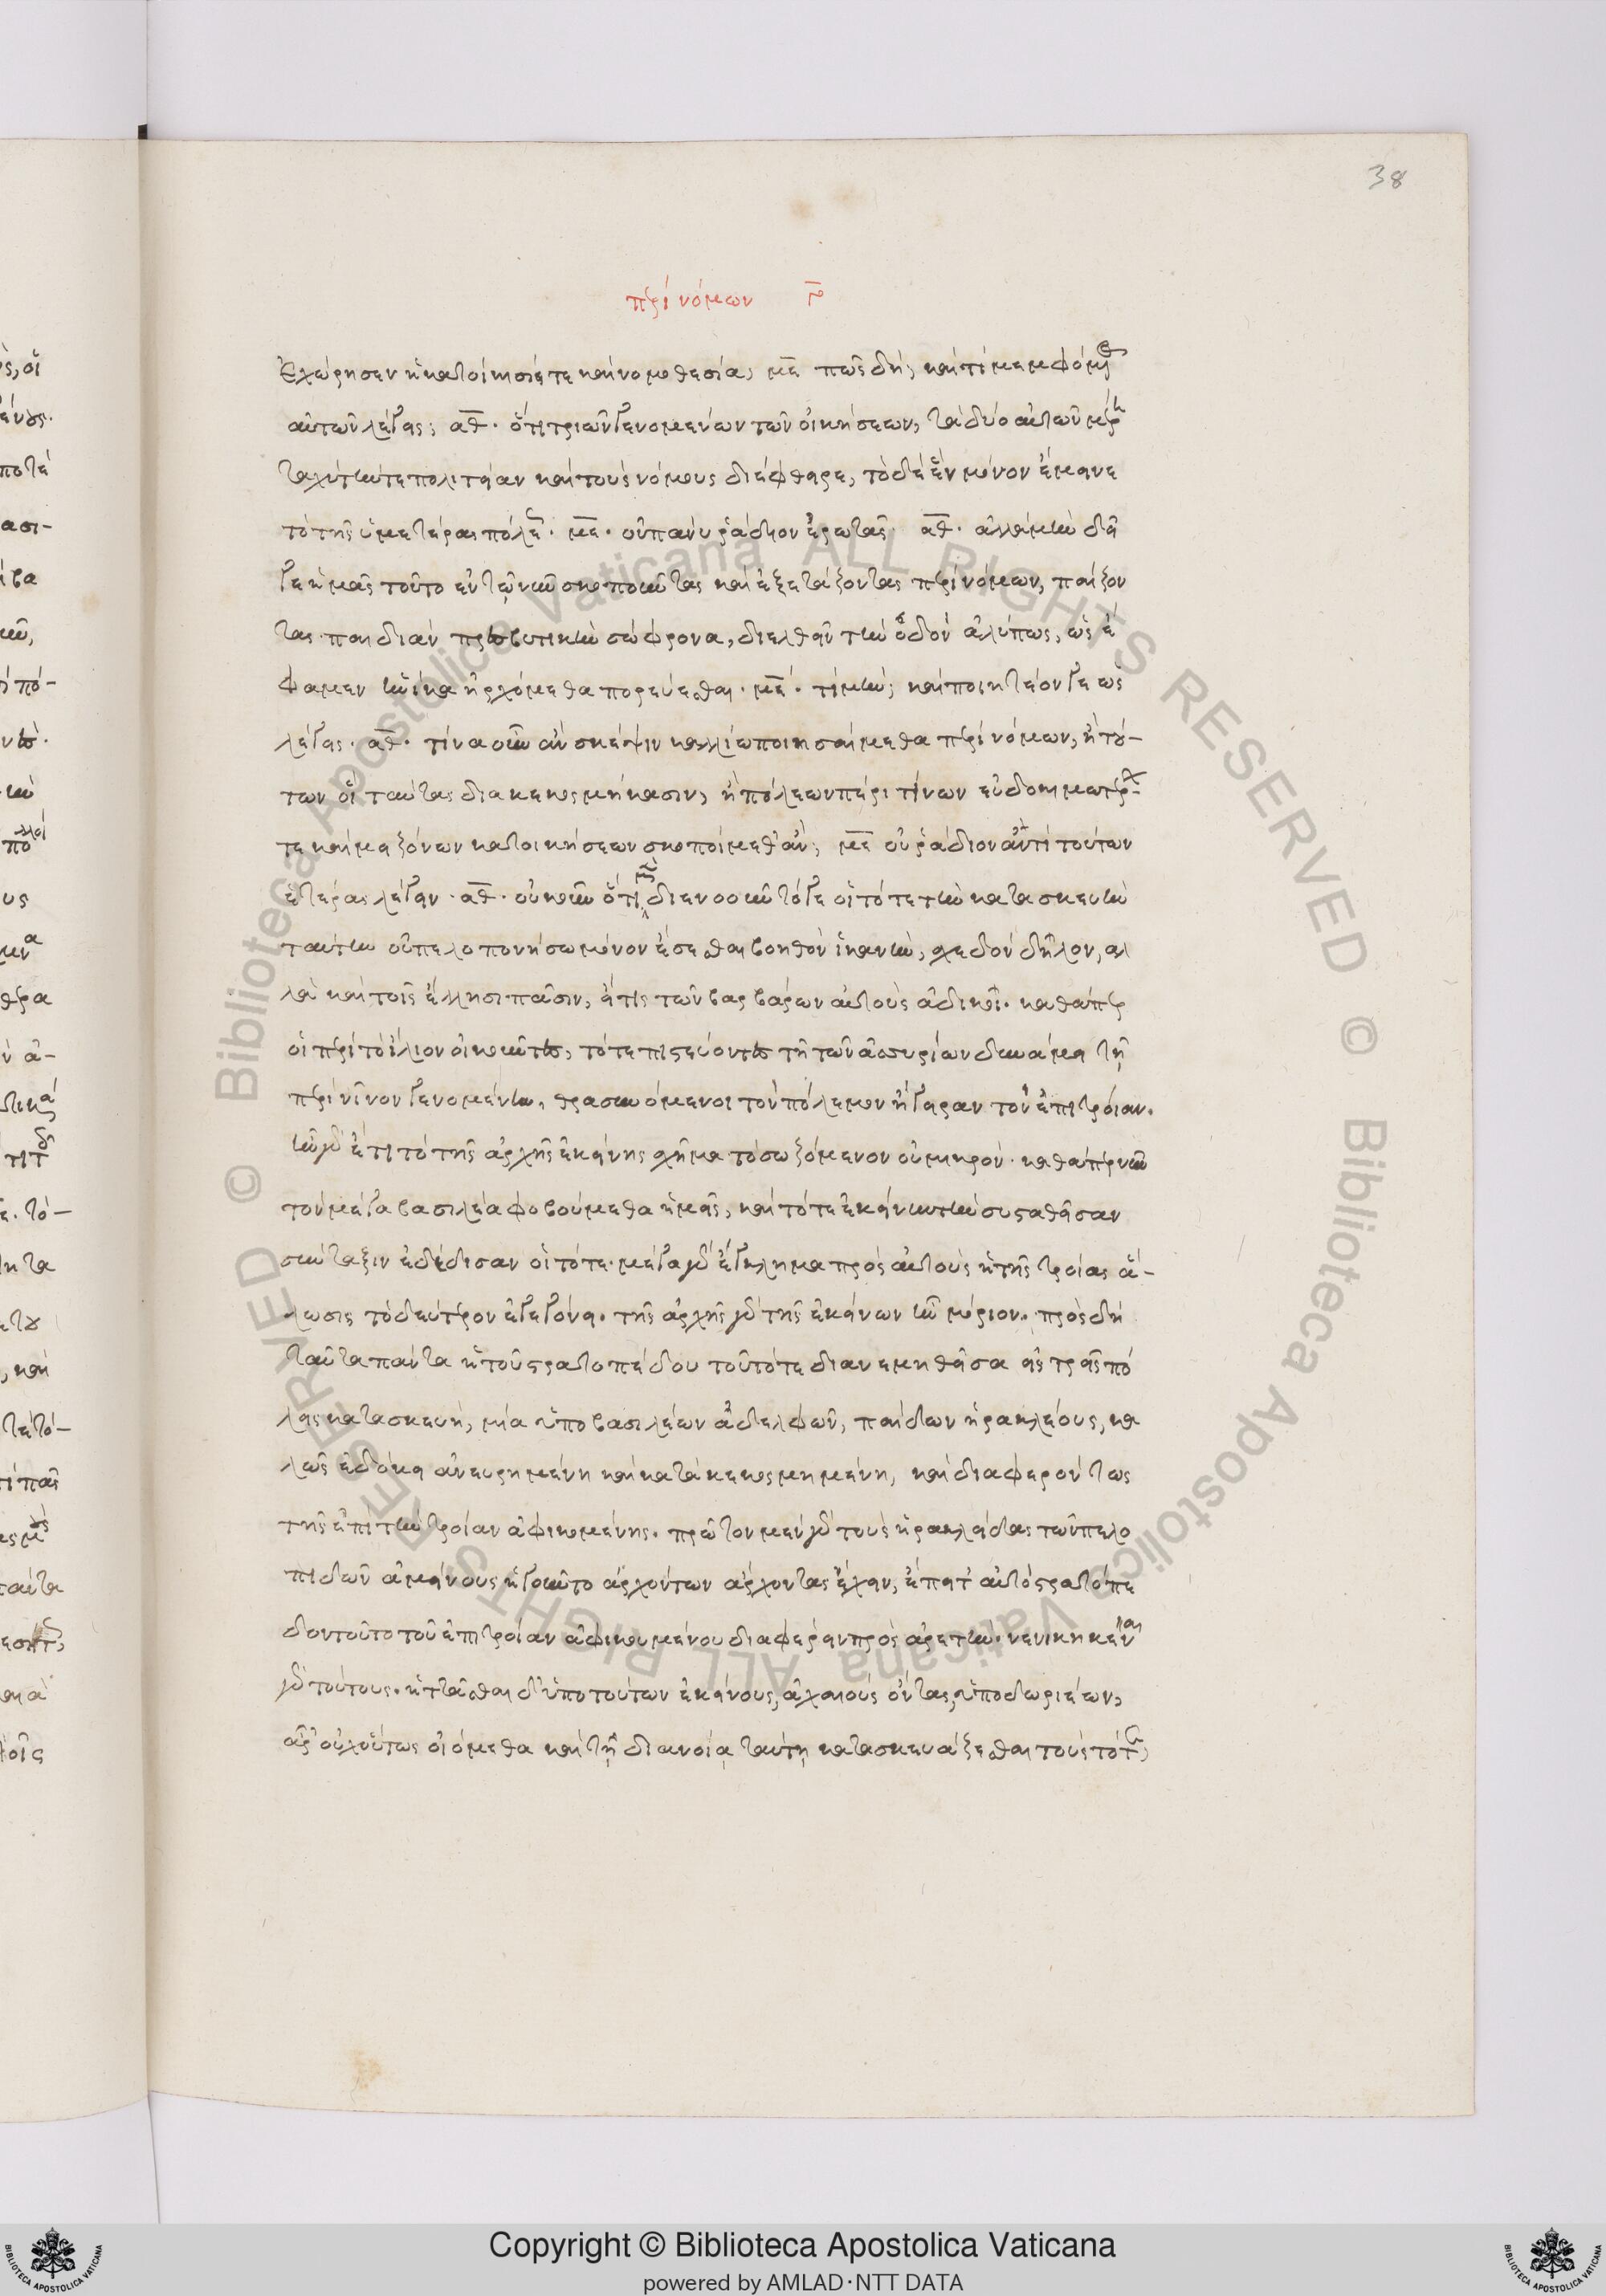 38
περὶ νόμων γ̄
ἐχώρησεν ἡ κατοίκησίς τε καὶ νομοθεσία; με πῶς δή; καὶ τί μεμφόμενος
αὐτῶν λέγεις; αθ. ὅτι τριῶν γενομένων τῶν οἰκήσεων, τὰ δύο αὐτῶν μέρη
ταχὺ τήν τε πολιτείαν καὶ τοὺς νόμους διέφθειρε, τὸ δὲ ἓν μόνον ἔμεινε
τὸ τῆς ὑμετέρας πόλεως. με. οὐ πάνυ ῥάδιον ἐρωτᾶς αθ. ἀλλὰ μὴν δεῖ
γε ἡμᾶς τοῦτο ἐν τῷ νῦν σκοποῦντας καὶ ἐξετάζοντας περὶ νόμων, παίζον
τας παιδιὰν πρεσβυτικὴν σώφρονα, διελθεῖν τὴν ὁδὸν ἀλύπως, ὡς ἔ
φαμεν ἡνίκα ἠρχόμεθα πορεύεσθαι. με. τί μήν; καὶ ποιητέον γε ὡς
λέγεις. αθ. τίνα οὖν ἂν σκέψιν καλλίω ποιησαίμεθα περὶ νόμων, ἢ τού-
των οἳ ταύτας διακεκοσμήκασιν; ἢ πόλεων πέρι τίνων εὐδοκιμωτέρων
τε καὶ μειζόνων κατοικήσεων σκοποίμεθ' ἄν; με οὐ ῥάδιον ἀντὶ τούτων
ἑτέρας λέγειν. αθ. οὐκοῦν ὅτι μὲν διενοοῦντό γε οἱ τότε τὴν κατασκευὴν
ταύτην οὐ πελοποννήσῳ μόνον ἔσεσθαι βοηθὸν ἱκανὴν, σχεδὸν δῆλον, ἀλ
λὰ καὶ τοῖς ἕλλησι πᾶσιν, εἴ τις τῶν βαρβάρων αὐτοὺς ἀδικοῖ. καθάπερ
οἱ περὶ τὸ ἴλιον οἰκοῦντες, τότε πιστεύοντες τῇ τῶν ἀσσυρίων δυνάμει τῇ
περὶ νῖνον γενομένῃ, θρασυνόμενοι τὸν πόλεμον ἤγειραν τὸν ἐπὶ τροίαν.
ἦν γὰρ ἔτι τὸ τῆς ἀρχῆς ἐκείνης σχῆμα τὸ σωζόμενον οὐ μικρόν. καθάπερ νῦν
τὸν μέγα βασιλέα φοβούμεθα ἡμεῖς, καὶ τότε ἐκείνην τὴν συσταθεῖσαν
σύνταξιν ἐδέδισαν οἱ τότε. μέγα γὰρ ἔγκλημα πρὸς αὐτοὺς ἡ τῆς τροίας ἅ-
λωσις τὸ δεύτερον ἐγεγόνει. τῆς ἀρχῆς γὰρ τῆς ἐκείνων ἦν μόριον. πρὸς δὴ
ταῦτα πάντα ἡ τοῦ στρατοπέδου τοῦ τότε διανεμηθεῖσα εἰς τρεῖς πό
λεις κατασκευή, μία ὑπὸ βασιλέων ἀδελφῶν, παίδων ἡρακλέους, κα
λῶς ἐδόκει ἀνευρημένη καὶ κατακεκοσμημένη, καὶ διαφερόντως
τῆς ἐπὶ τὴν τροίαν ἀφικομένης. πρῶτον μὲν γὰρ τοὺς ἡρακλείδας τῶν πελο
πιδῶν ἀμείνους ἡγοῦντο ἀρχόντων ἄρχοντας ἔχειν, ἔπειτ' αὐτὸ στρατόπε
δον τοῦτο τοῦ ἐπὶ τροίαν ἀφικουμένου διαφέρειν πρὸς ἀρετήν. νενικηκέναι
γὰρ τούτους. ἡττᾶσθαι δ' ὑπὸ τούτων ἐκείνους, ἀχαιοὺς ὄντας, ὑπὸ δωριέων,
ἆρ' οὐχ οὕτως οἰόμεθα καὶ τῇ διανοίᾳ ταύτῃ κατασκευάζεσθαι τοὺς τότε,
© Biblioteca Apostolica Vaticana ALL RIGHTS RESERVED
© Biblioteca Apostolica Vaticana ALL RIGHTS RESERVED
Copyright © Biblioteca Apostolica Vaticana
powered by AMLAD·NTT DATA